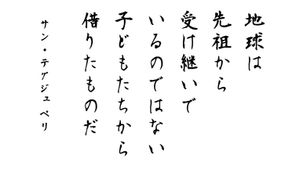 地球は
先祖から
受け継いで
いるのではない
子どもたちから
借りたものだ
サン・テグジュペリ